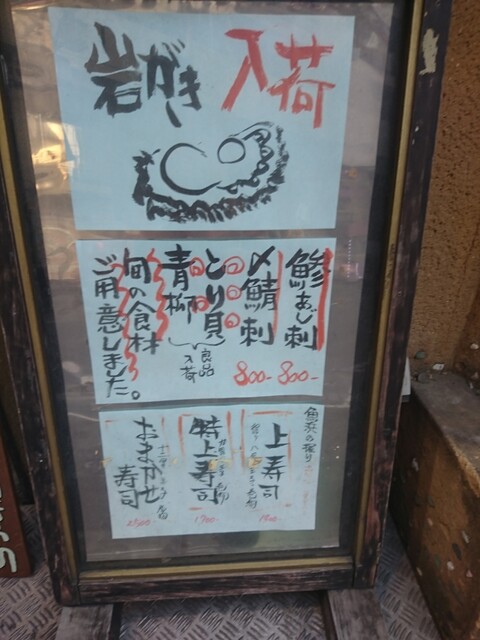 岩がき 入荷
鯵あじ刺
800-
〆鯖刺
800-
とり貝
青柳
良品
入荷
旬の食材
ご用意しました。
上寿司
特上寿司
おまかせ
寿司
2500-